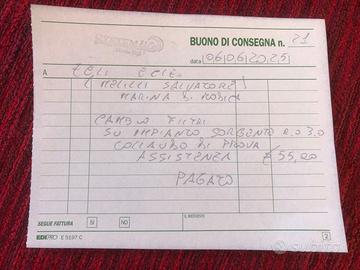 SYSTEM
BUONO DI CONSEGNA n. 21
data 06062025
A
(MELILLI SALVATORE)
MARINA DI MODICA
CAMBIO FILTRI
SU IMPIANTO SORGENTE R.O 3.0
COLLAUDO DI PROVA
ASSISTENZA € 55,00
PAGATO
SEGUE FATTURA SI NO
EDIPRO E 5197 C
2
subito